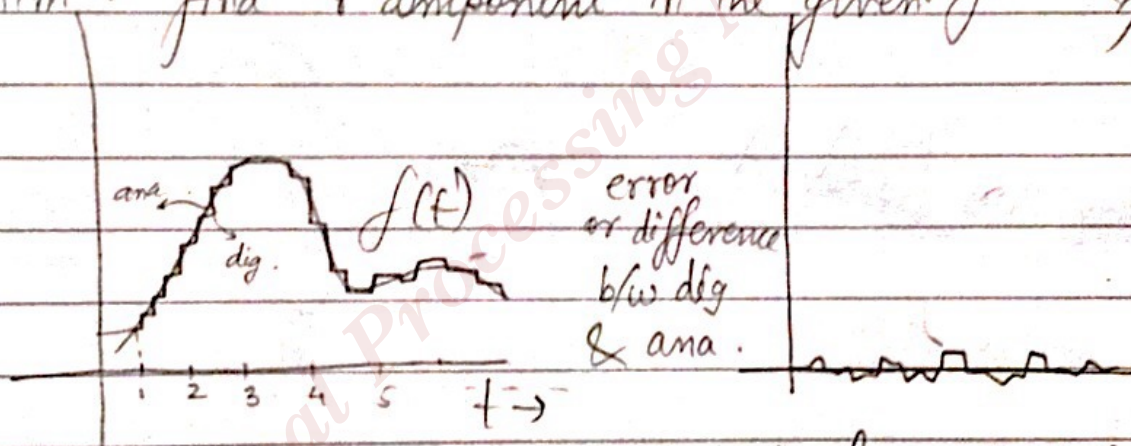 find component in the given
ana.
dig.
f(t)
error
or difference
b/w dig
& ana.
1 2 3 4 5 t →
al Processing